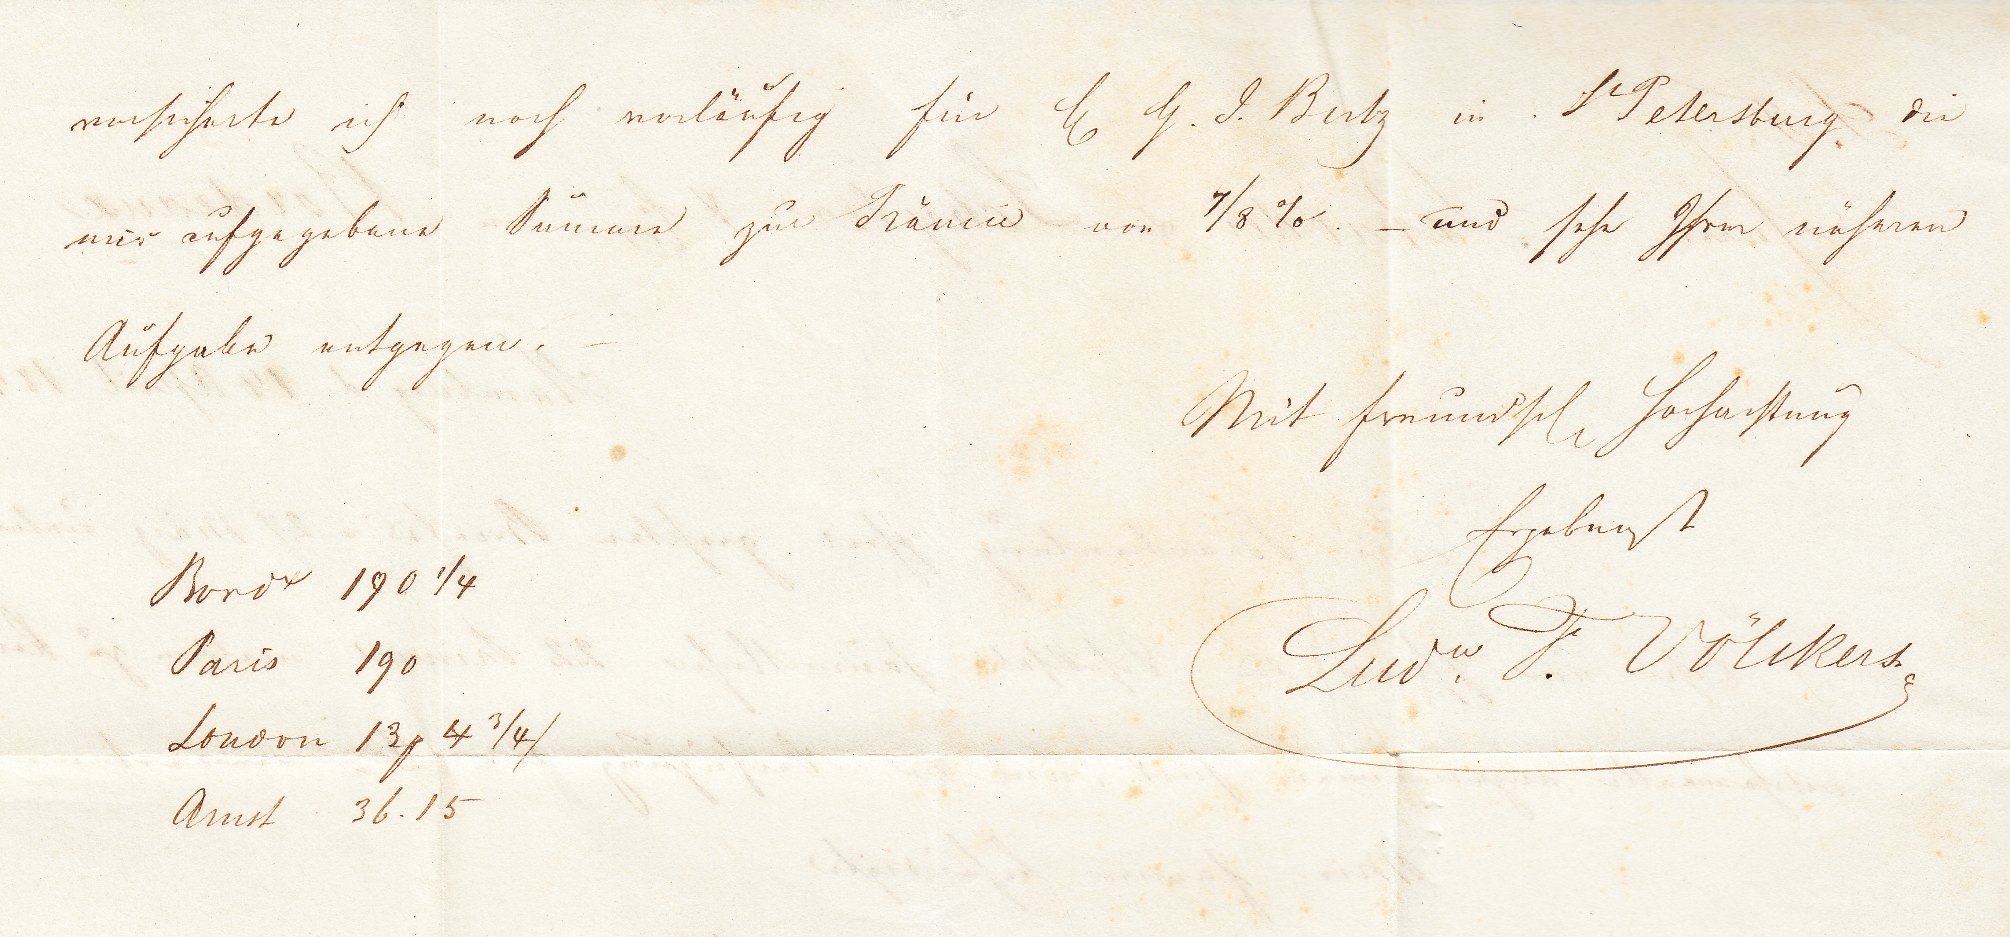 versicherte ich noch vorläufig für G. J. Bertz in St Petersburg die
mir aufgegebene Summe zur Prämie von 7/8 %. – und sehe Ihrer näheren
Aufgabe entgegen. –
Mit freundschl Hochachtung
Ergebenst
Ludw. F. Völckers
Bordx 190 1/4
Paris 190
London 13 4 3/4
Amst 36.15